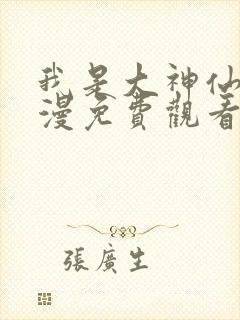 我是大神仙
漫免費觀看
張廣生